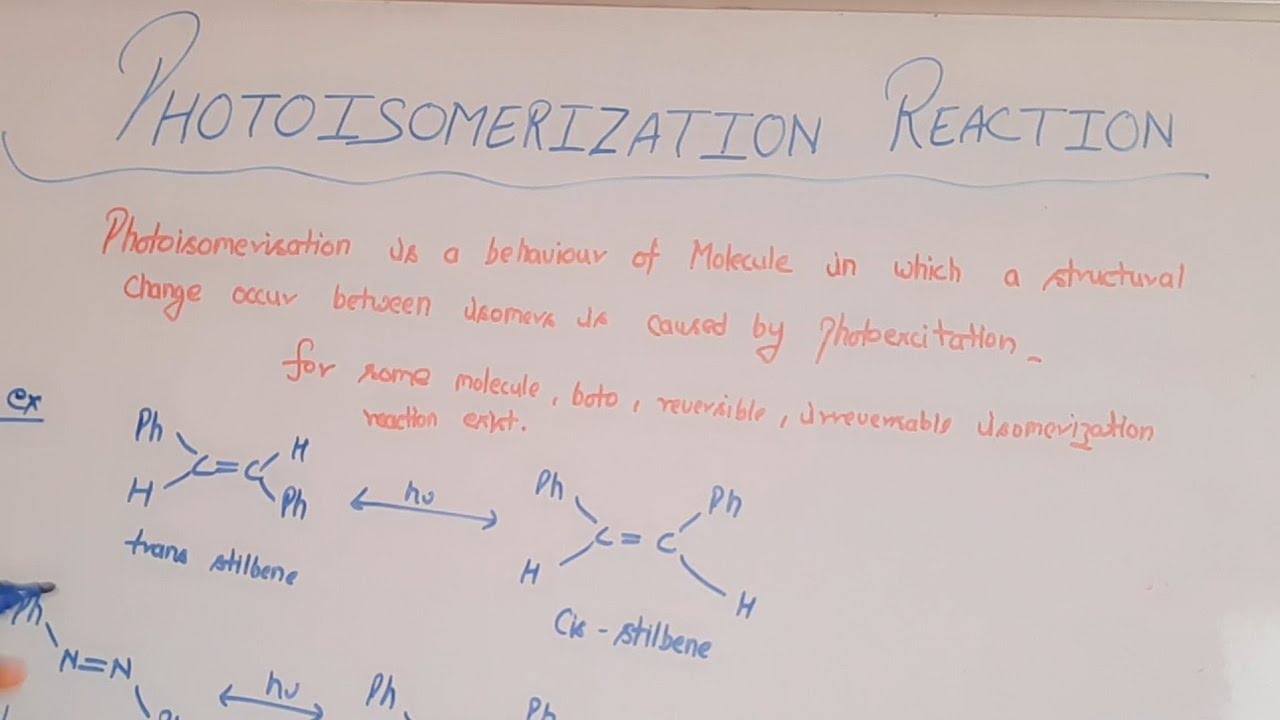 PHOTOISOMERIZATION REACTION
Photoisomerisation is a behaviour of Molecule in which a structural
change occur between isomers is caused by Photoexcitation
for some molecule, boto, reversible, irreversable isomerization
reaction exist.
ex
Ph H
C=C
H Ph
hυ
trans stilbene
Ph Ph
C=C
H H
Cis-stilbene
Ph
N=N
hυ
Ph
Ph